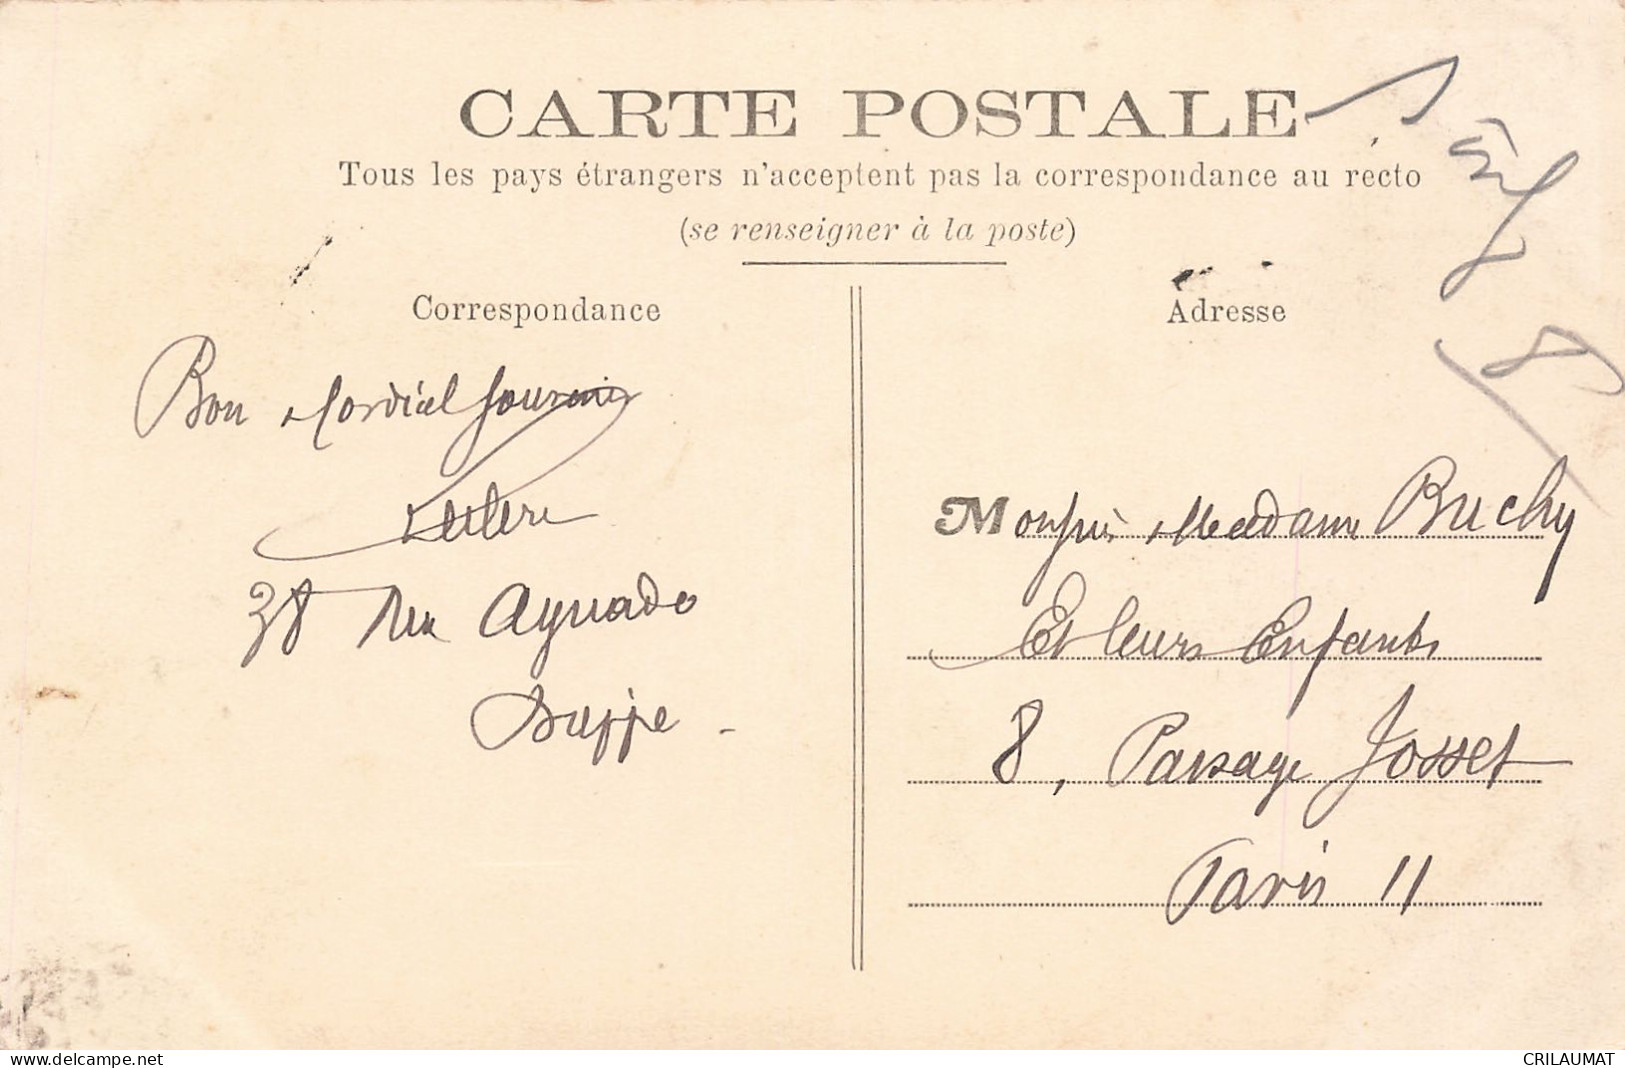 CARTE POSTALE
Tous les pays étrangers n'acceptent pas la correspondance au recto
(se renseigner à la poste)
Correspondance
Bon Cordial Souvenir
Leclerc
38 Rue Aguado
Dieppe -
Adresse
Monsieur Madame Buchy
Et leurs Enfants
8, Passage Josset
Paris 11
www.delcampe.net
CRILAUMAT